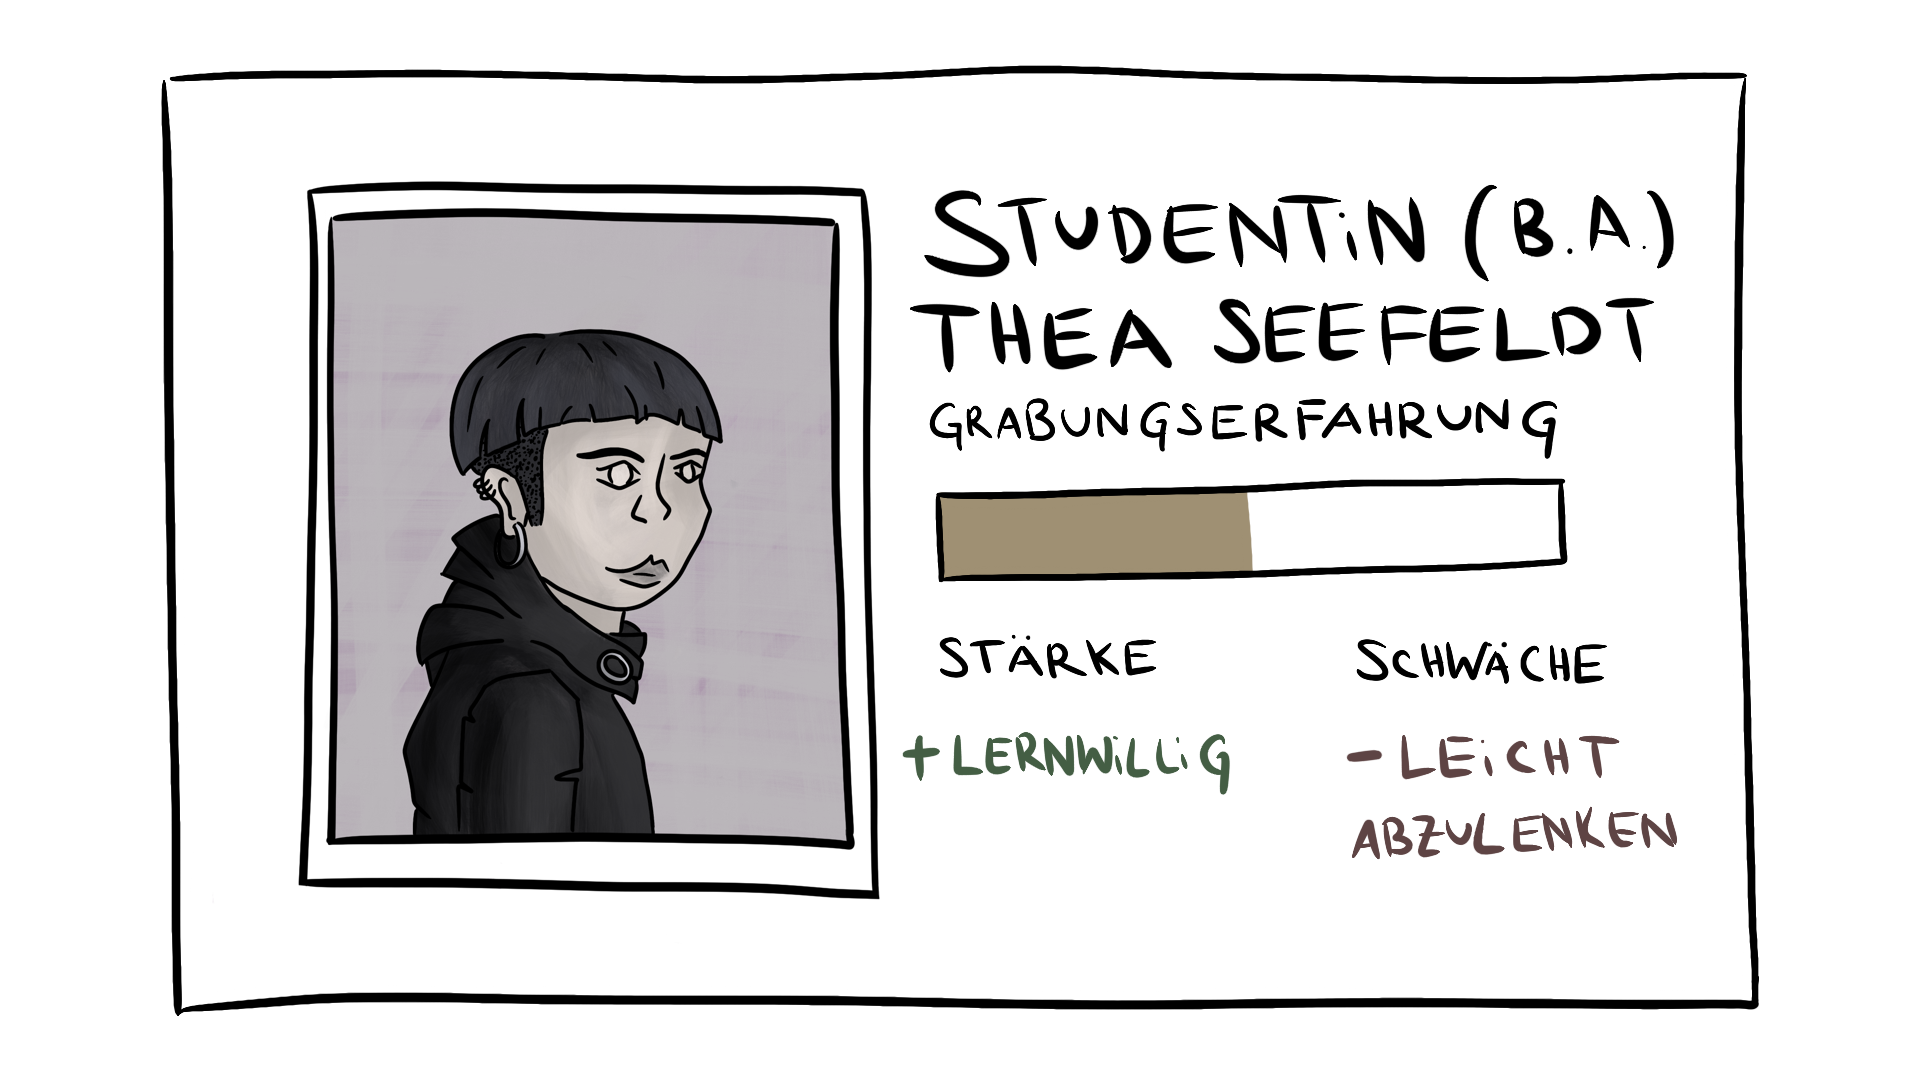 STUDENTiN (B.A.)
THEA SEEFELDT
GRABUNGSERFAHRUNG
STÄRKE
SCHWÄCHE
+ LERNWiLLiG
- LEiCHT
ABZULENKEN